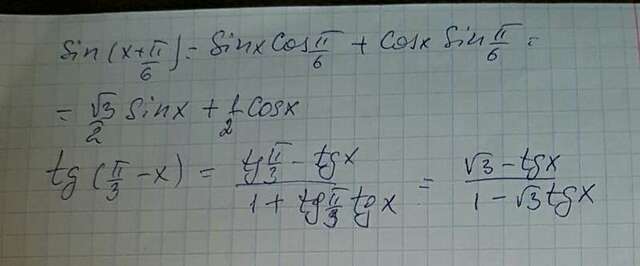 sin(x+π/6) = sinx cos π/6 + cosx sin π/6 =
= √3/2 sinx + 1/2 cosx
tg(π/3 - x) = (tg π/3 - tgx)/(1 + tg π/3 tg x) = (√3 - tgx)/(1 - √3 tgx)